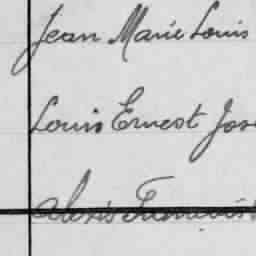 Jean Marie Louis
Louis Ernest Jos
Alexis